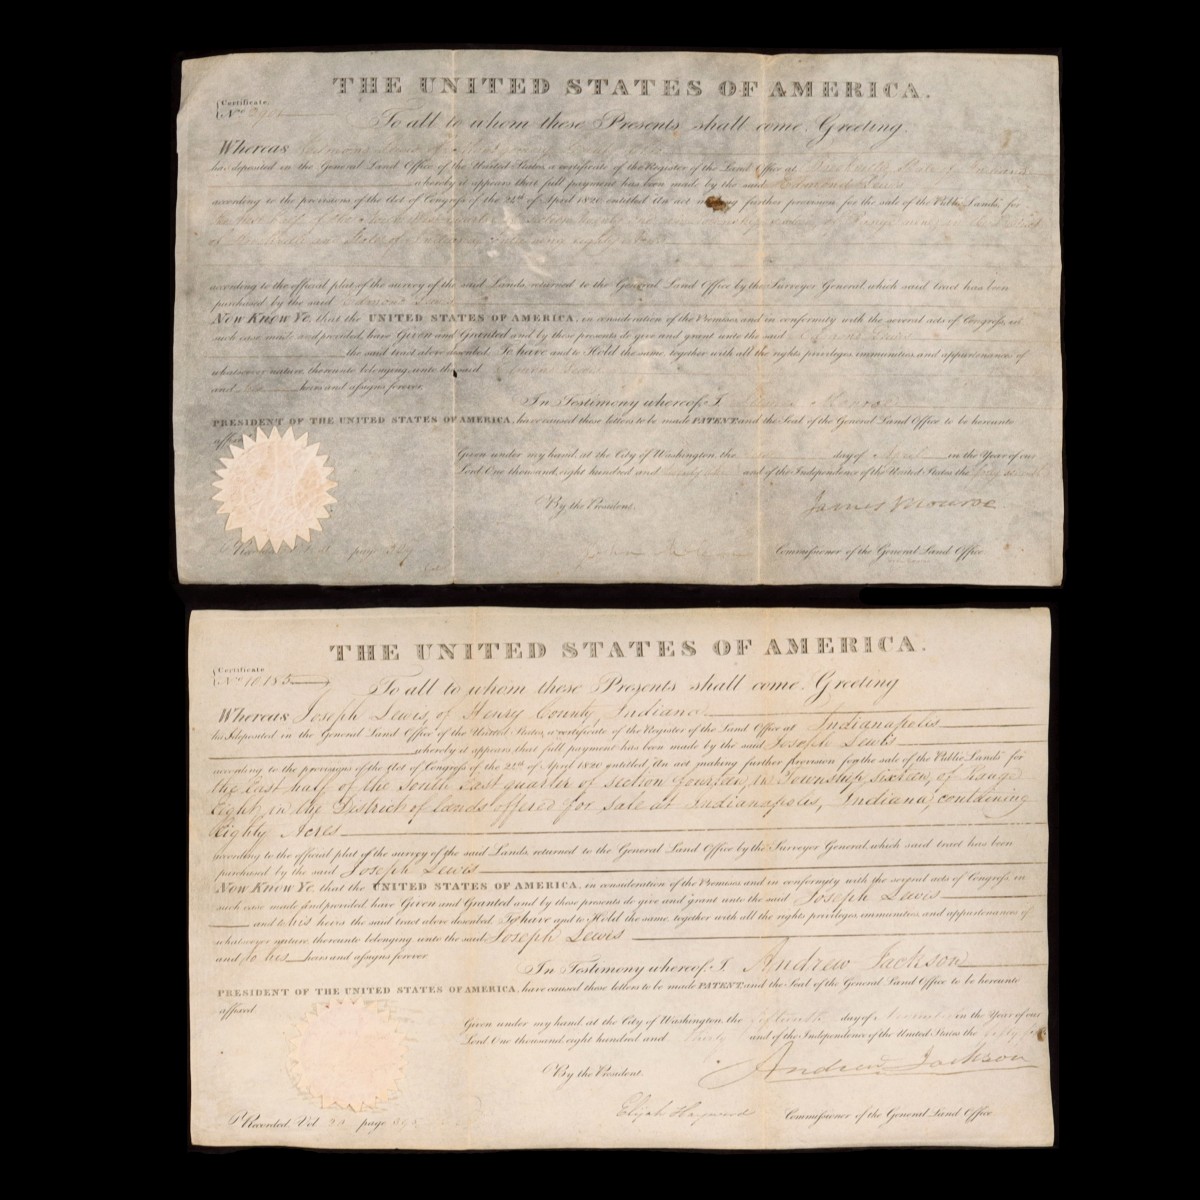 THE UNITED STATES OF AMERICA.
Certificate
No
To all to whom these Presents shall come, Greeting.
Whereas
has deposited in the General Land Office of the United States, a certificate of the Register of the Land Office at
whereby it appears that full payment has been made by the said Edmond Lewis
according to the provisions of the Act of Congress of the 24th of April 1820 entitled An act making further provision for the sale of the Public Lands for
of
according to the official plat of the survey of the said Lands, returned to the General Land Office by the Surveyor General, which said tract has been
purchased by the said Edmond Lewis
Now Know Ye, that the UNITED STATES OF AMERICA, in consideration of the Premises, and in conformity with the several acts of Congress, in
such case made and provided, have Given and Granted and by these presents do give and grant unto the said
the said tract above described. To have and to Hold the same, together with all the rights privileges, immunities, and appurtenances of
whatsoever nature, thereunto belonging, unto the said
and heirs and assigns forever.
In Testimony whereof, I, James Monroe
PRESIDENT OF THE UNITED STATES OF AMERICA, have caused these letters to be made PATENT, and the Seal of the General Land Office to be hereunto
affixed
Given under my hand, at the City of Washington, the day of April in the Year of our
Lord One thousand, eight hundred and and of the Independence of the United States the
By the President. James Monroe
page Commissioner of the General Land Office
THE UNITED STATES OF AMERICA.
Certificate
No 10185
To all to whom these Presents shall come, Greeting
Whereas Joseph Lewis, of Henry County, Indiana
has deposited in the General Land Office of the United States, a certificate of the Register of the Land Office at Indianapolis
whereby it appears that full payment has been made by the said Joseph Lewis
according to the provisions of the Act of Congress of the 24th of April 1820 entitled "An act making further provision for the sale of the Public Lands" for
the East half of the South East quarter of section fourteen, in Township sixteen, of Range
Eight, in the District of lands offered for sale at Indianapolis, Indiana, containing
Eighty Acres
according to the official plat of the survey of the said Lands, returned to the General Land Office by the Surveyor General, which said tract has been
purchased by the said Joseph Lewis
Now Know Ye, that the UNITED STATES OF AMERICA, in consideration of the Premises, and in conformity with the several acts of Congress, in
such case made and provided, have Given and Granted and by these presents do give and grant unto the said Joseph Lewis
and to his heirs the said tract above described. To have and to Hold the same, together with all the rights privileges, immunities, and appurtenances of
whatsoever nature, thereunto belonging unto the said Joseph Lewis
and to his heirs and assigns forever
In Testimony whereof, I, Andrew Jackson
PRESIDENT OF THE UNITED STATES OF AMERICA, have caused these letters to be made PATENT, and the Seal of the General Land Office to be hereunto
affixed
Given under my hand, at the City of Washington, the fifteenth day of in the Year of our
Lord One thousand, eight hundred and thirty and of the Independence of the United States the fifty
By the President. Andrew Jackson
Elijah Hayward Commissioner of the General Land Office
Recorded, Vol page